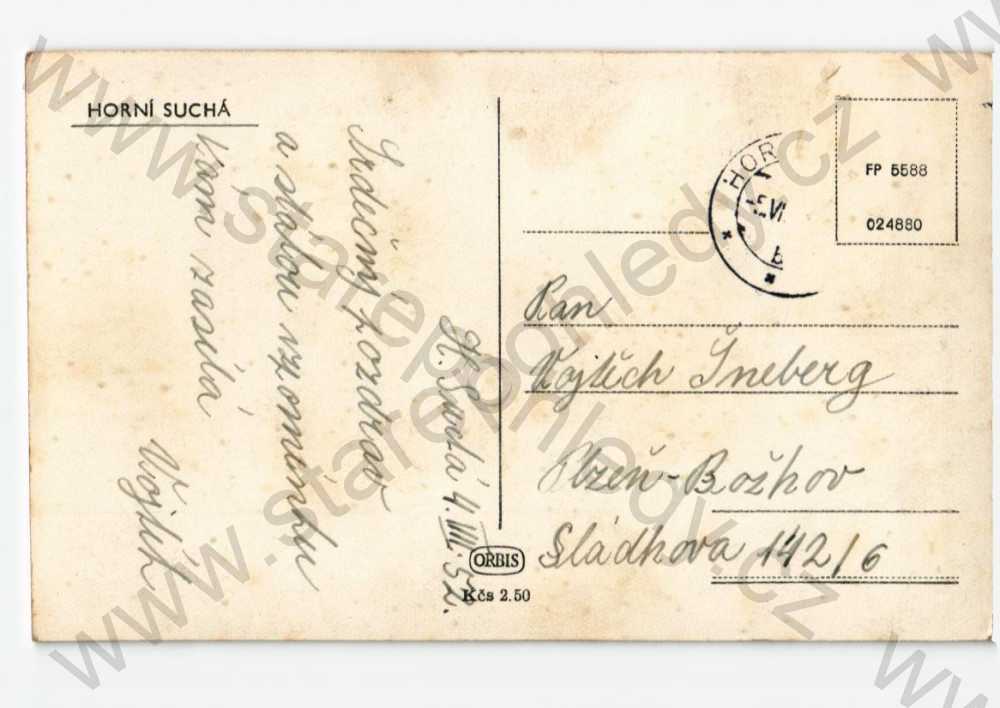 HORNÍ SUCHÁ
H. Suchá 4. VII. 52.
Srdečný pozdrav
a stálou vzpomínku
Vám zasílá
Vojtěch
HOR
-5.VI
b
FP 5588
024880
Pan
Vojtěch Šneberg
Plzeň-Božkov
Sládkova 142/6
ORBIS
Kčs 2.50
www.starepohledy.cz
www.starepohledy.cz